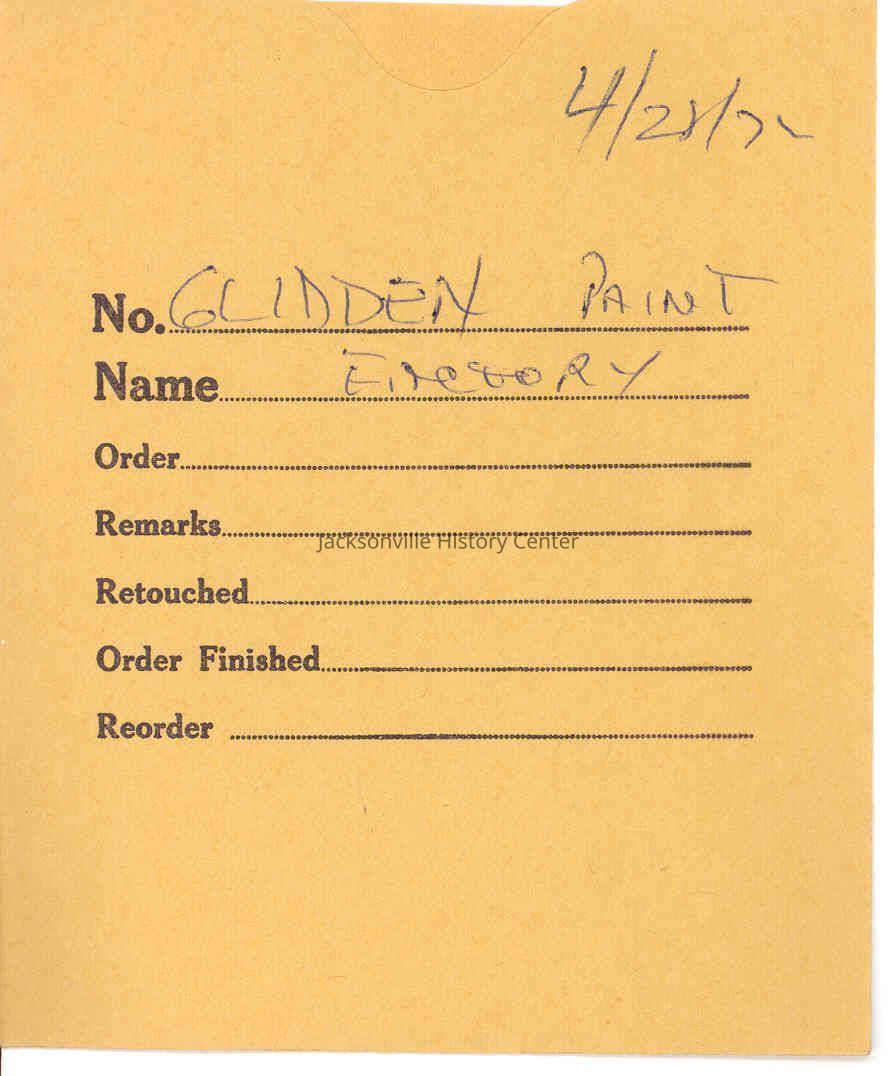 4/28/72
No. GLIDDEN PAINT
Name FACTORY
Order
Remarks
Jacksonville History Center
Retouched
Order Finished
Reorder